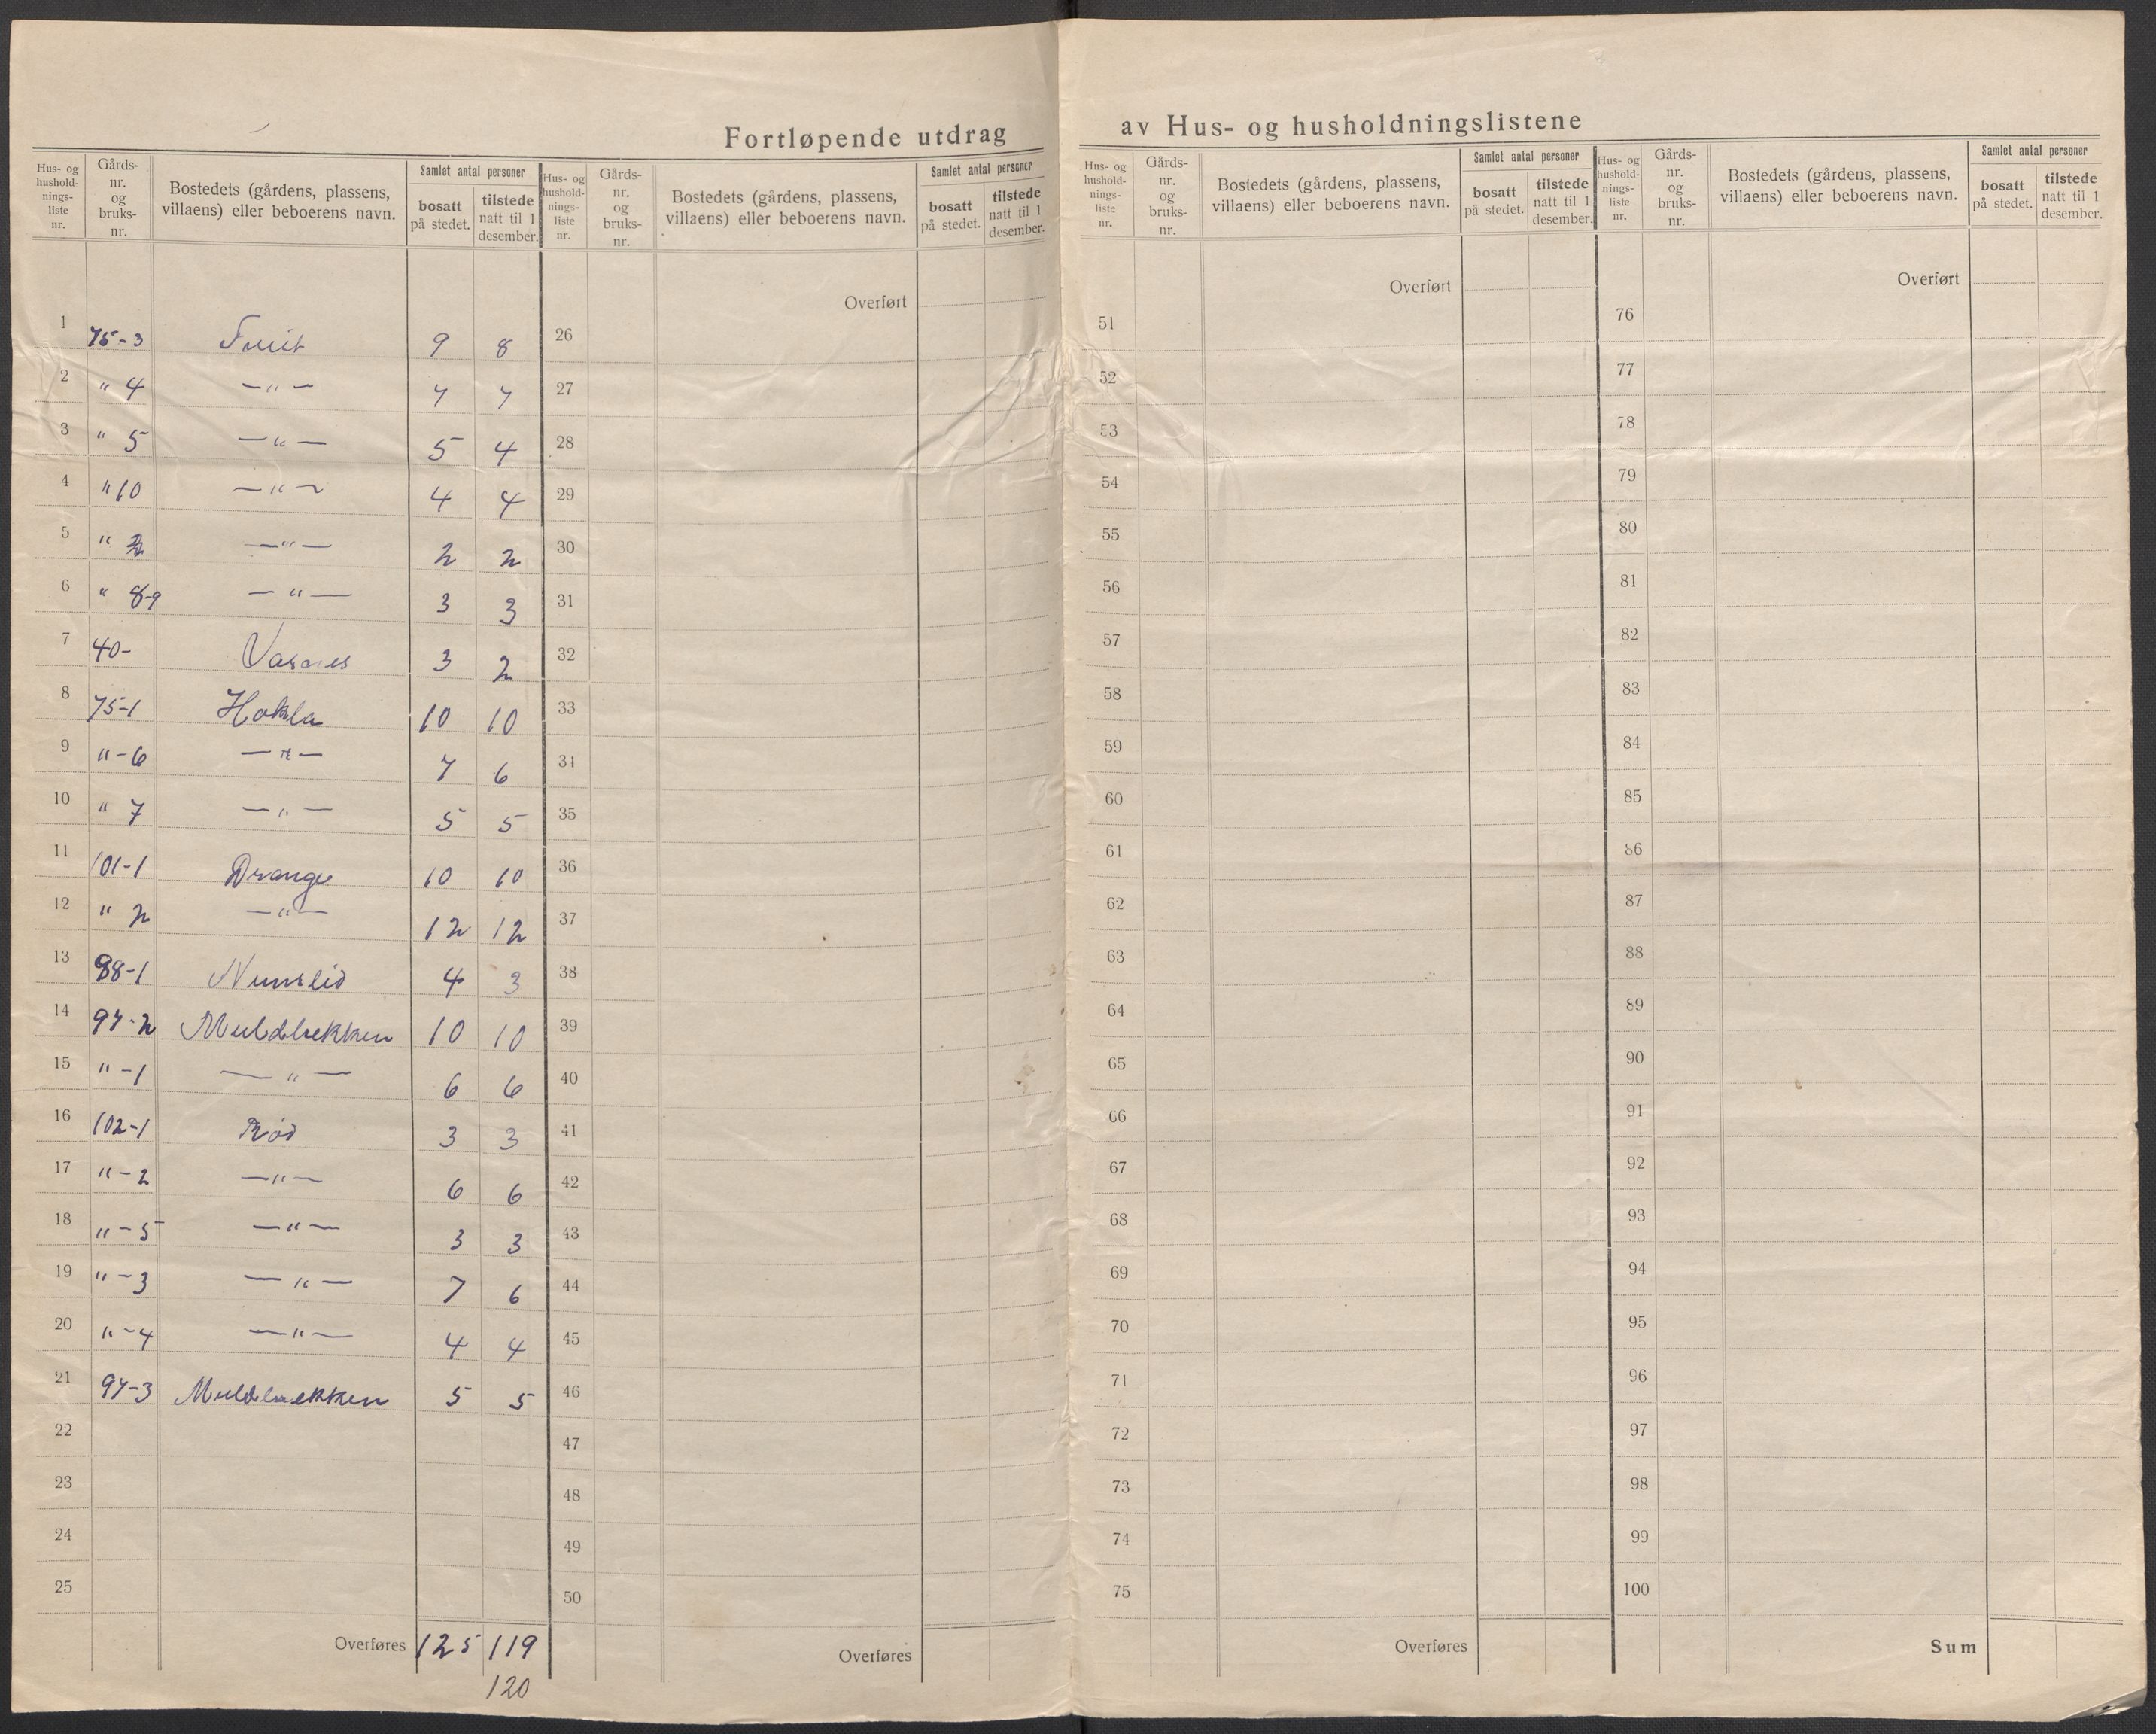 Fortløpende utdrag av Hus- og husholdningslistene
Hus- og hushold-nings-liste nr. Gårds-nr. og bruks-nr. Bostedets (gårdens, plassens, villaens) eller beboerens navn. Samlet antal personer bosatt på stedet. tilstede natt til 1 desember.
1 75-3 9 8
2 " 4 —"— 7 7
3 " 5 —"— 5 4
4 " 10 —"— 4 4
5 " 2 —"— 2 2
6 " 8-9 —"— 3 3
7 40- Vasnes 3 2
8 75-1 Hokla 10 10
9 "-6 —"— 7 6
10 " 7 —"— 5 5
11 101-1 Drange 10 10
12 " 2 —"— 12 12
13 98-1 Numslid 4 3
14 97-2 Muldbækken 10 10
15 "-1 —"— 6 6
16 102-1 Rød 3 3
17 "-2 —"— 6 6
18 "-5 —"— 3 3
19 "-3 —"— 7 6
20 "-4 —"— 4 4
21 97-3 Muldbækken 5 5
22
23
24
25
Overføres 125 119
120
Hus- og hushold-nings-liste nr. Gårds-nr. og bruks-nr. Bostedets (gårdens, plassens, villaens) eller beboerens navn. Samlet antal personer bosatt på stedet. tilstede natt til 1 desember.
Overført
26
27
28
29
30
31
32
33
34
35
36
37
38
39
40
41
42
43
44
45
46
47
48
49
50
Overføres
Hus- og hushold-nings-liste nr. Gårds-nr. og bruks-nr. Bostedets (gårdens, plassens, villaens) eller beboerens navn. Samlet antal personer bosatt på stedet. tilstede natt til 1 desember.
Overført
51
52
53
54
55
56
57
58
59
60
61
62
63
64
65
66
67
68
69
70
71
72
73
74
75
Overføres
Hus- og hushold-nings-liste nr. Gårds-nr. og bruks-nr. Bostedets (gårdens, plassens, villaens) eller beboerens navn. Samlet antal personer bosatt på stedet. tilstede natt til 1 desember.
Overført
76
77
78
79
80
81
82
83
84
85
86
87
88
89
90
91
92
93
94
95
96
97
98
99
100
Sum